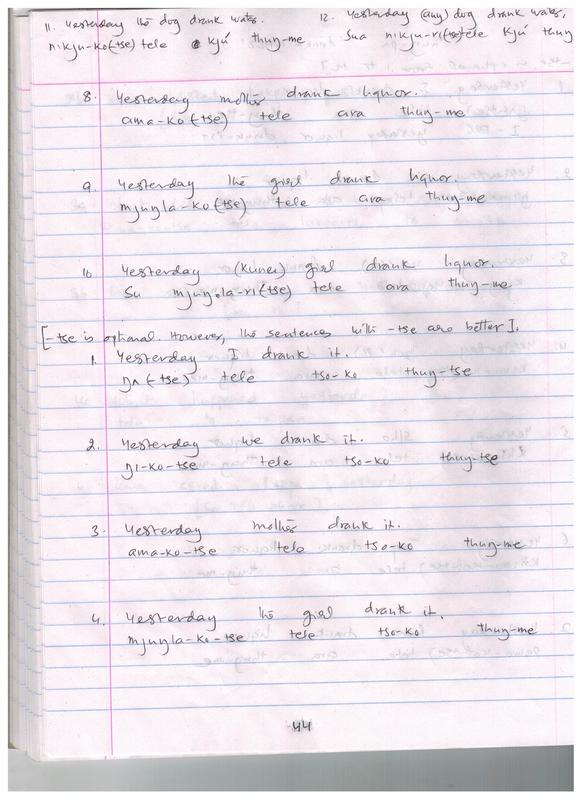 11. Yesterday the dog drank water.
nikju-ko(tse) tele kjú thuŋ-me
12. Yesterday (any) dog drank water,
Sua nikju-ri(tse)tele kjú thuŋ
8. Yesterday mother drank liquor.
ama-ko (-tse) tele ara thuŋ-me
9. Yesterday the girl drank liquor.
mjuŋla-ko (tse) tele ara thuŋ-me
10 Yesterday (kunei) girl drank liquor.
Su mjuŋla-ri(tse) tele ara thuŋ-me
[-tse is optional. However, the sentences with -tse are better].
1. Yesterday I drank it.
ŋʌ (-tse) tele tso-ko thuŋ-tse
2. Yesterday we drank it.
ŋi-ko-tse tele tso-ko thuŋ-tse
3. Yesterday mother drank it.
ama-ko-tse tele tso-ko thuŋ-me
4. Yesterday the girl drank it.
mjuŋla-ko-tse tele tso-ko thuŋ-me
44